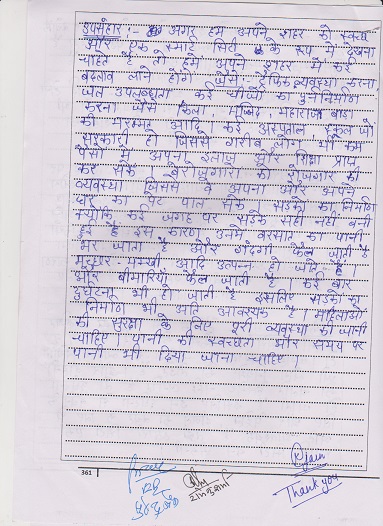 उपसंहार :- अगर हम अपने शहर को स्वच्छ
और एक स्मार्ट सिटी के रूप में देखना
चाहते है तो हमें अपने शहर में कई
बदलाव लाने होंगे जैसे:- ट्रैफिक व्यवस्था करना,
जल उपलब्धता कई चीजों का पुनर्निर्माण
करना जैसे किला, मस्जिद, महाराज बाडा
की मरम्मत आदि। कई अस्पताल, स्कूल जो
सरकारी हो जिससे गरीब लोग भी कम
पैसों में अपना इलाज और शिक्षा प्राप्त
कर सके बेरोजगारों को रोजगार की
व्यवस्था जिससे वे अपना और अपने
घर का पेट पाल सके सडकों का निर्माण
क्योंकि कई जगह पर सडके सही नहीं बनी
हुई है इस कारण उनमें बरसात का पानी
भर जाता है और गंदगी फैल जाती है
मच्छर-मक्खी आदि उत्पन्न हो जाते है।
और बीमारियाँ फैल जाती है कई बार
दुर्घटना भी हो जाती है इसलिए सडकों का
निर्माण भी अति आवश्यक है। महिलाओं
की सुरक्षा के लिए पूरी व्यवस्था की जानी
चाहिए। पानी की स्वच्छता और समय पर
पानी भी दिया जाना चाहिए।
361
Thank you